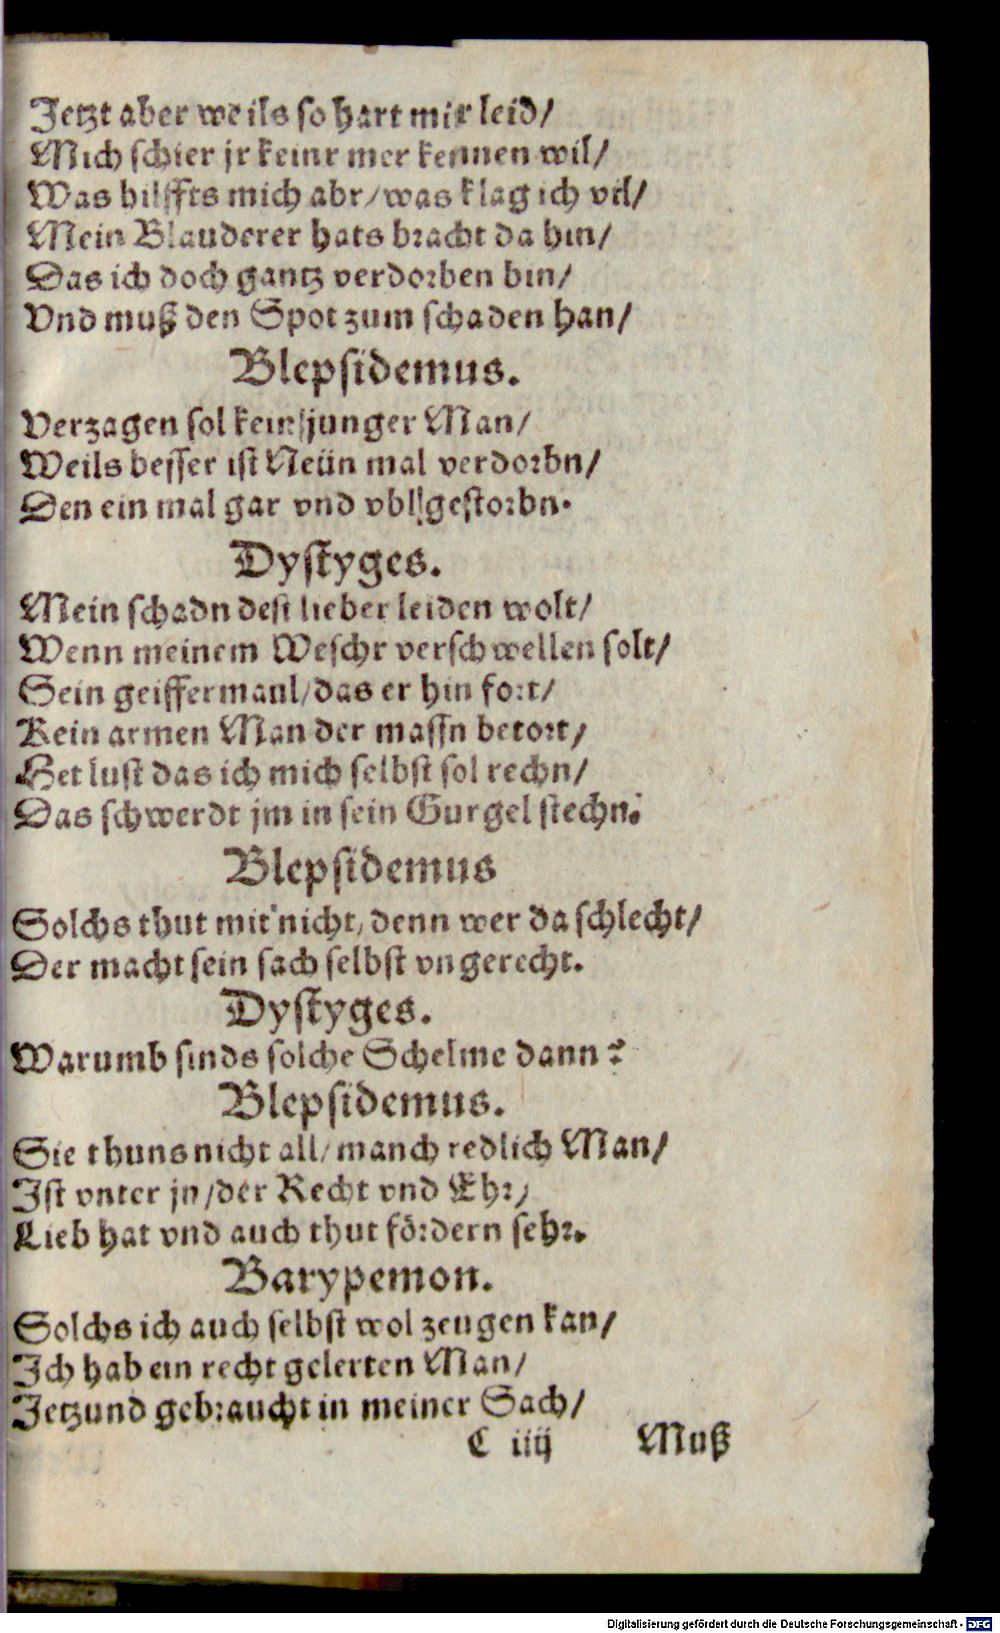 Jetzt aber weils so hart mir leid/
Mich schier jr keinr mer kennen wil/
Was hilffts mich abr/was klag ich vil/
Mein Blauderer hats bracht da hin/
Das ich doch gantz verdorben bin/
Vnd muß den Spot zum schaden han/
Blepsidemus.
Verzagen sol kein junger Man/
Weils besser ist Neün mal verdorbn/
Den ein mal gar vnd vbl gestorbn.
Dystyges.
Mein schadn dest lieber leiden wolt/
Wenn meinem Weschr verschwellen solt/
Sein geiffermaul/das er hin fort/
Kein armen Man der massn betort/
Het lust das ich mich selbst sol rechn/
Das schwerdt jm in sein Gurgel stechn.
Blepsidemus
Solchs thut mit nicht/denn wer da schlecht/
Der macht sein sach selbst vngerecht.
Dystyges.
Warumb sinds solche Schelme dann?
Blepsidemus.
Sie thuns nicht all/manch redlich Man/
Ist vnter jn/der Recht vnd Ehr/
Lieb hat vnd auch thut fördern sehr.
Barypemon.
Solchs ich auch selbst wol zeugen kan/
Ich hab ein recht gelerten Man/
Jetzund gebraucht in meiner Sach/
C iiij Muß
Digitalisierung gefördert durch die Deutsche Forschungsgemeinschaft - DFG